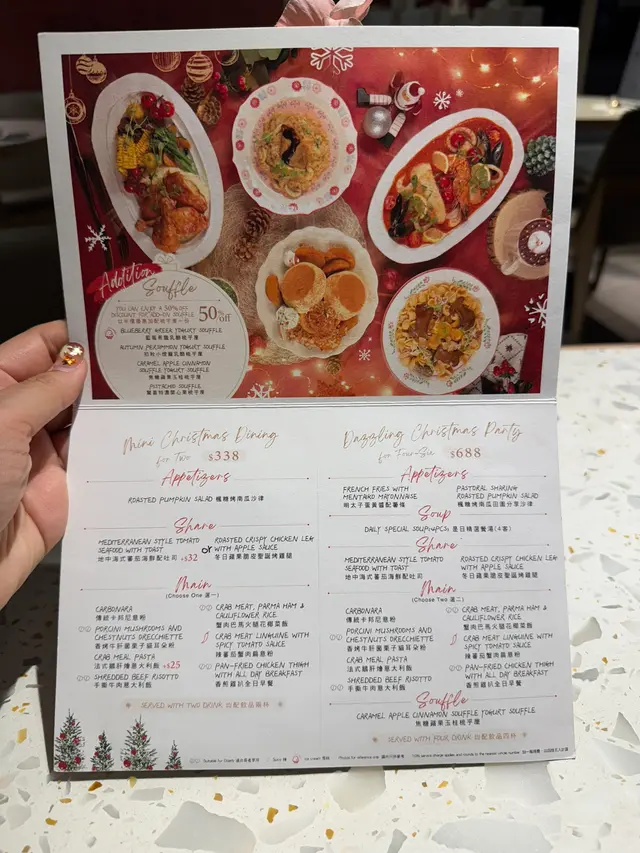 Addition
Souffle
YOU CAN ENJOY A 50% OFF
DISCOUNT FOR ADD-ON SOUFFLE
50% off
BLUEBERRY HOKKA YOGURT SOUFFLE
AUTUMN PERSIMMON YOGURT SOUFFLE
CARAMEL APPLE CINNAMON
SOUFFLE YOGURT SOUFFLE
焦糖蘋果玉桂梳乎厘
PISTACHIO SOUFFLE
Mini Christmas Dining
for Two $338
Appetizers
ROASTED PUMPKIN SALAD 楓糖烤南瓜沙律
Share
MEDITERRANEAN STYLE TOMATO
SEAFOOD WITH TOAST
地中海式蕃茄海鮮配吐司 +$32
or
ROASTED CRISPY CHICKEN LEG
WITH APPLE SAUCE
冬日蘋果脆皮聖誕烤雞腿
Main
(Choose One 選一)
CARBONARA
傳統卡邦尼意粉
PORCINI MUSHROOMS AND
CHESTNUTS ORECCHIETTE
香烤牛肝菌栗子貓耳朵粉
CRAB MEAL PASTA
+$25
SHREDDED BEEF RISOTTO
手撕牛肉意大利飯
CRAB MEAT, PARMA HAM &
CAULIFLOWER RICE
蟹肉巴馬火腿花椰菜飯
CRAB MEAT LINGUINE WITH
SPICY TOMATO
辣蕃茄蟹肉扁意粉
PAN-FRIED CHICKEN THIGH
WITH ALL DAY BREAKFAST
香煎雞扒全日早餐
SERVED WITH TWO DRINK 自配飲品兩杯
Dazzling Christmas Party
for Four-Six $688
Appetizers
FRENCH FRIES WITH
MENTAIKO MAYONNAISE
明太子蛋黃醬配薯條
PASTORAL SHARING
ROASTED PUMPKIN SALAD
楓糖烤南瓜田園分享沙律
Soup
DAILY SPECIAL SOUP(4PCS) 是日精選餐湯(4客)
Share
MEDITERRANEAN STYLE TOMATO
SEAFOOD WITH TOAST
地中海式蕃茄海鮮配吐司
ROASTED CRISPY CHICKEN LEG
WITH APPLE SAUCE
冬日蘋果脆皮聖誕烤雞腿
Main
(Choose Two 選二)
CARBONARA
傳統卡邦尼意粉
PORCINI MUSHROOMS AND
CHESTNUTS ORECCHIETTE
香烤牛肝菌栗子貓耳朵粉
CRAB MEAL PASTA
SHREDDED BEEF RISOTTO
手撕牛肉意大利飯
CRAB MEAT, PARMA HAM &
CAULIFLOWER RICE
蟹肉巴馬火腿花椰菜飯
CRAB MEAT LINGUINE WITH
SPICY TOMATO
辣蕃茄蟹肉扁意粉
PAN-FRIED CHICKEN THIGH
WITH ALL DAY BREAKFAST
香煎雞扒全日早餐
Souffle
CARAMEL APPLE CINNAMON SOUFFLE YOGURT SOUFFLE
焦糖蘋果玉桂梳乎厘
SERVED WITH FOUR DRINK 自配飲品四杯